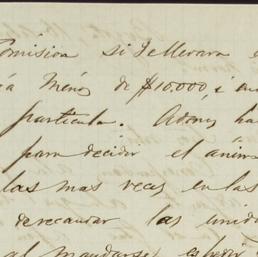 Comision si Fellevara e
á Menos de $10.000, i au
particula. Adems ha
para decidir el ánim
las mas veces en las
derecaudar las unid
al mandarse espedir